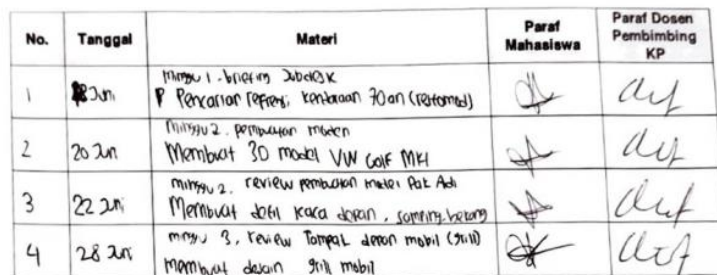 No. Tanggal Materi Paraf Mahasiswa Paraf Dosen Pembimbing KP
minggu 1. briefing Jobdesk
1 18 Juni Pencarian refrensi kendaraan 70an (restomod)
minggu 2. pembuatan
2 20 Jun Membuat 3D model VW Golf MK1
minggu 2. review pembuatan model Pak Adi
3 22 Juni Membuat detil kaca depan, samping, belakang
minggu 3, review Tampak depan mobil (grill)
4 28 Juni membuat desain grill mobil